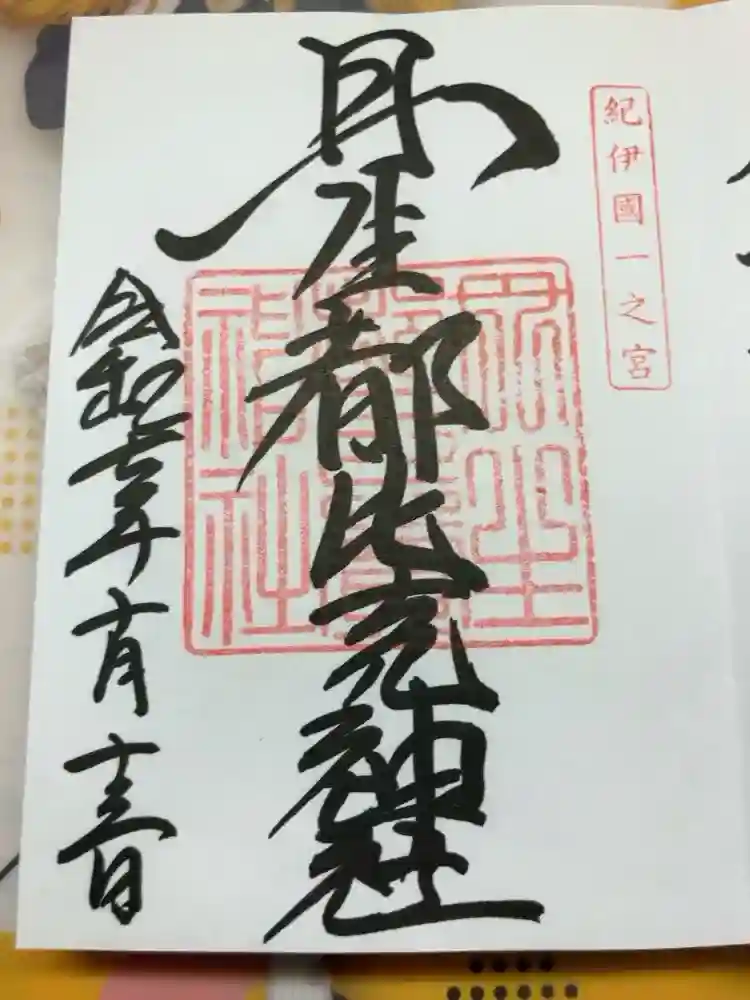 紀伊國一之宮
丹生都比売神社
令和七年十月十三日